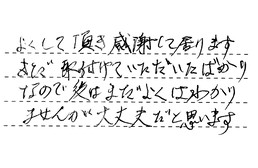 よくして頂き感謝して居ります
まだ取付けていただいたばかり
なので後はまだよくはわかり
ませんが大丈夫だと思います